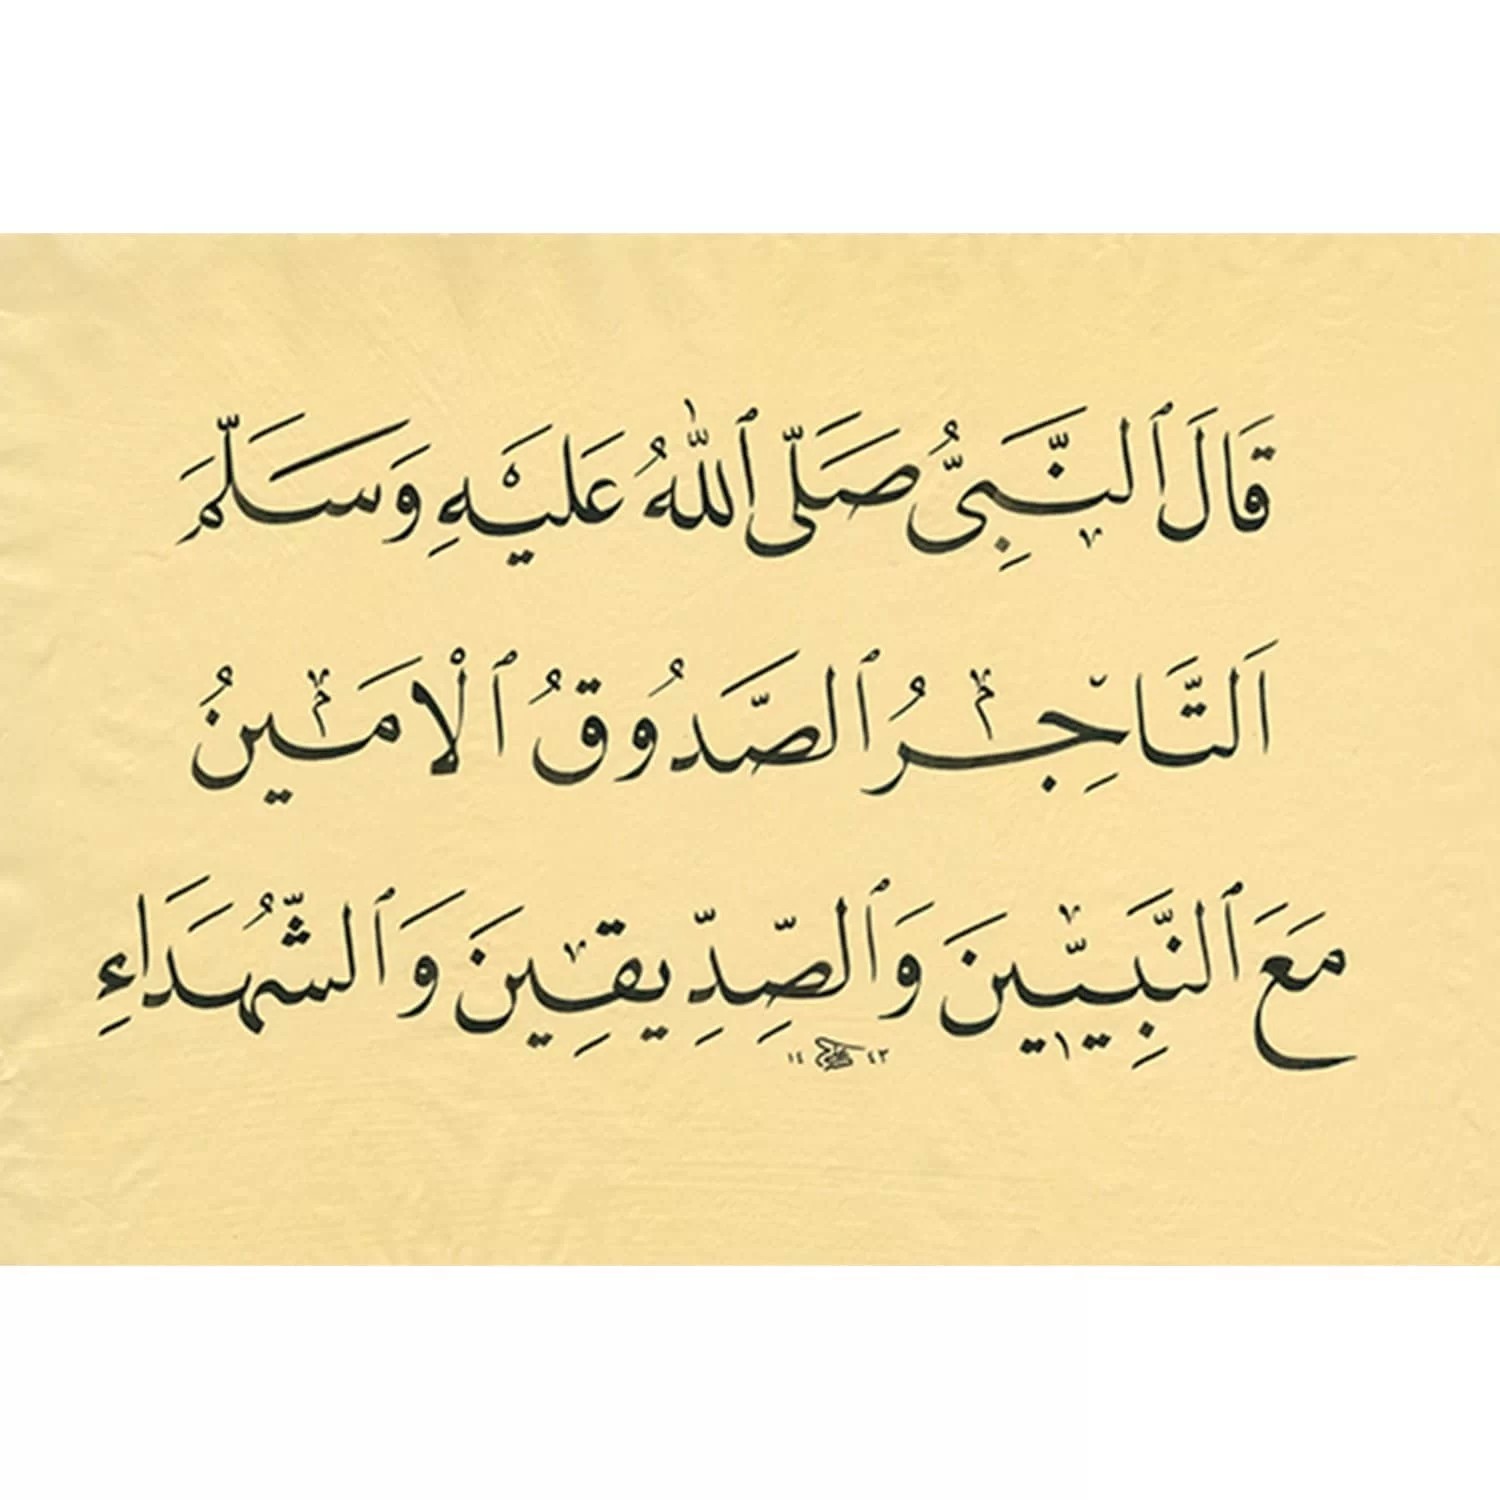 قَالَ ٱلنَّبِىُّ صَلَّى ٱللّٰهُ عَلَيْهِ وَسَلَّمَ
اَلتَّاجِرُ ٱلصَّدُوقُ ٱلْاَمِينُ
مَعَ ٱلنَّبِيّٖينَ وَٱلصِّدِّيقِينَ وَٱلشُّهَدَاءِ
١٤ ٤٣